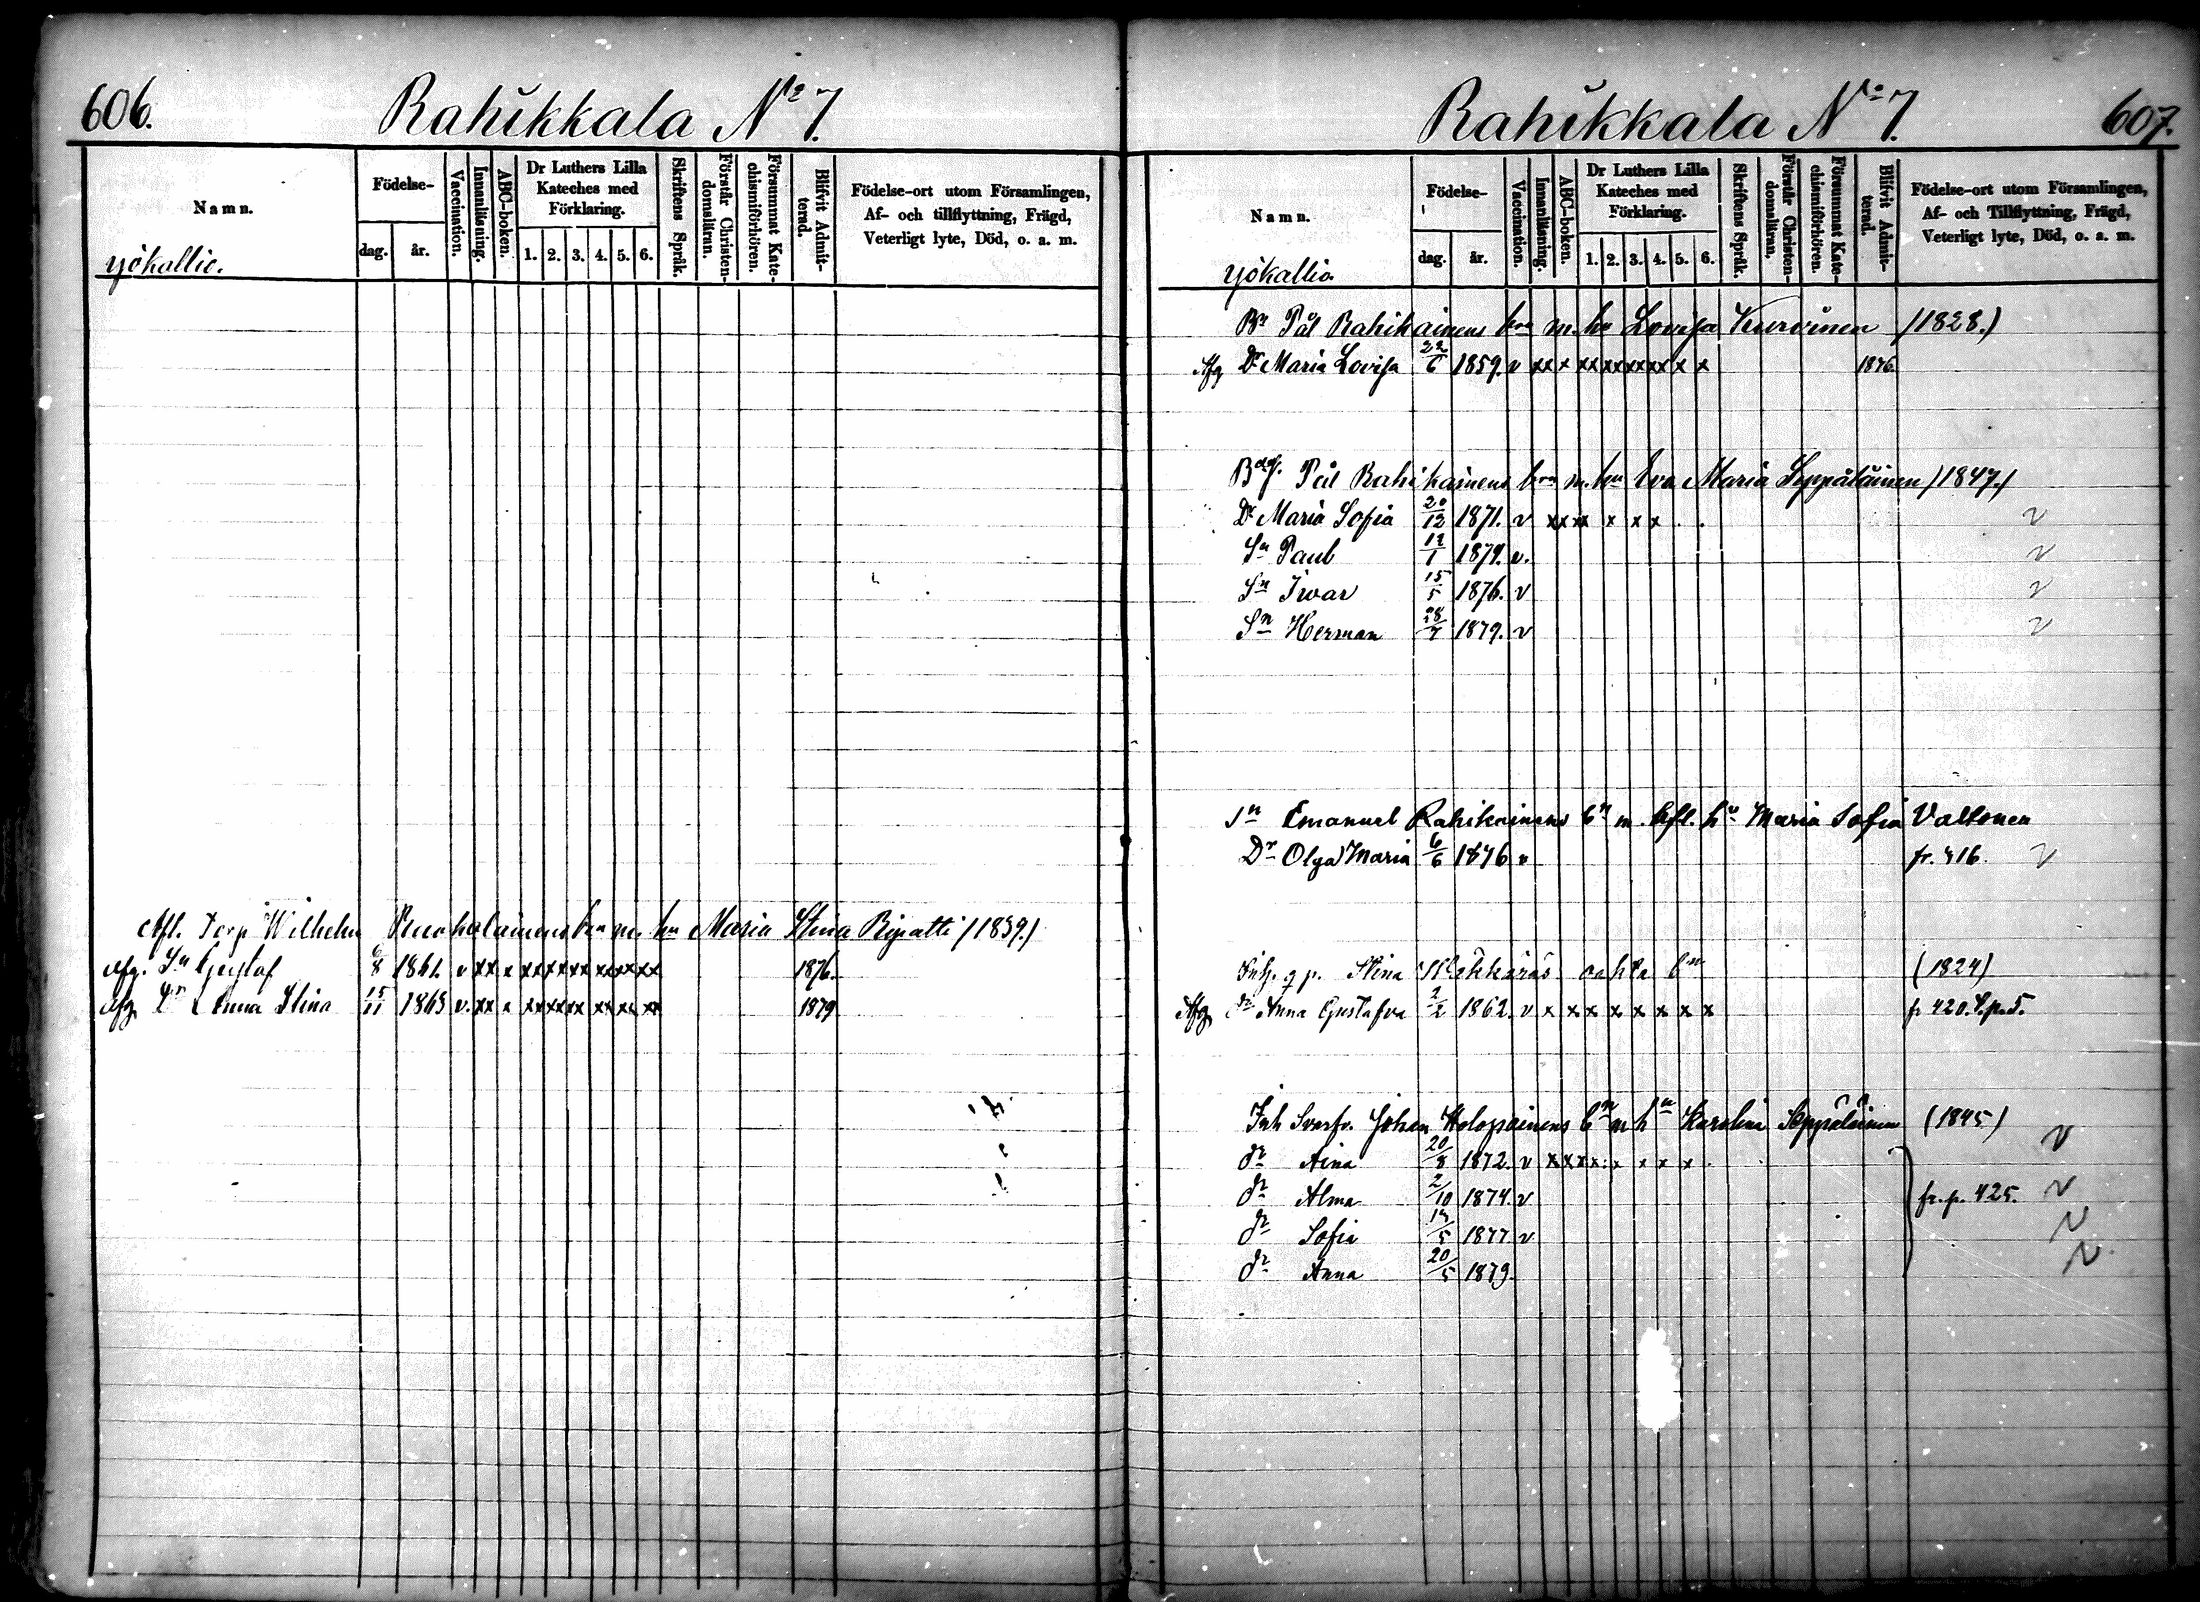 606.
Rahikkala No 7.
Namn.
Yökallio.
Födelse-
dag. år.
Vaccination.
Innanläsning.
ABC-boken.
Dr Luthers Lilla Kateches med Förklaring.
1. 2. 3. 4. 5. 6.
Skriftens Språk.
Förstår Christendomsläran.
Försummat Katechismiförhören.
Blifvit Admitterad.
Födelse-ort utom Församlingen,
Af- och tillflyttning, Frägd,
Veterligt lyte, Död, o. a. m.
Afl. Torp Wilhelm bn m. hu Maria Stina Ripatti (1839.)
Afg. Sn Gustaf 6/8 1861. v xx x xxxxxx xxxxxx 1876.
Afg Dr Anna Stina 15/11 1863 v. xx x xxxxxx xxxx xx 1879
Rahikkala No 7.
607.
Namn.
Yökallio
Födelse-
dag. år.
Vaccination.
Innanläsning.
ABC-boken.
Dr Luthers Lilla Kateches med Förklaring.
1. 2. 3. 4. 5. 6.
Skriftens Språk.
Förstår Christendomsläran.
Försummat Katechismiförhören.
Blifvit Admitterad.
Födelse-ort utom Församlingen,
Af- och Tillflyttning, Frägd,
Veterligt lyte, Död, o. a. m.
Bn Pål Rahikainens bn m. hu Lovisa Kurvinen (1828.)
Afg Dr Maria Lovisa 22/6 1859. v xx x xx xx xx xx x x 1876.
Pål Rahikainens bn m. hu Eva Maria Seppäläinen (1847.)
Dr Maria Sofia 20/12 1871. v xx xx x x x . . v
Sn Paul 12/1 1874. v. v
Sn Ivar 15/5 1876. v v
Sn Herman 28/7 1879. v v
Sn Emanuel Rahikainens bn m. afl. hu Maria Sofia Valtonen
Dr Olga Maria 6/6 1876 v fr. 416. v
Inh. q p. Stina oähta bn (1824)
Afg dr Anna Gustafva 2/2 1862. v x x x x x x x x fr 420. S.p. 5.
Inh Svarfv. Johan Holopainens bn m hu Karolina Seppäläinen (1845)
dr Aina 20/8 1872. v xxxx. x x x x . v
dr Alma 2/10 1874. v fr. p. 425. v
dr Sofia 14/5 1877 v v
dr Anna 20/5 1879. v